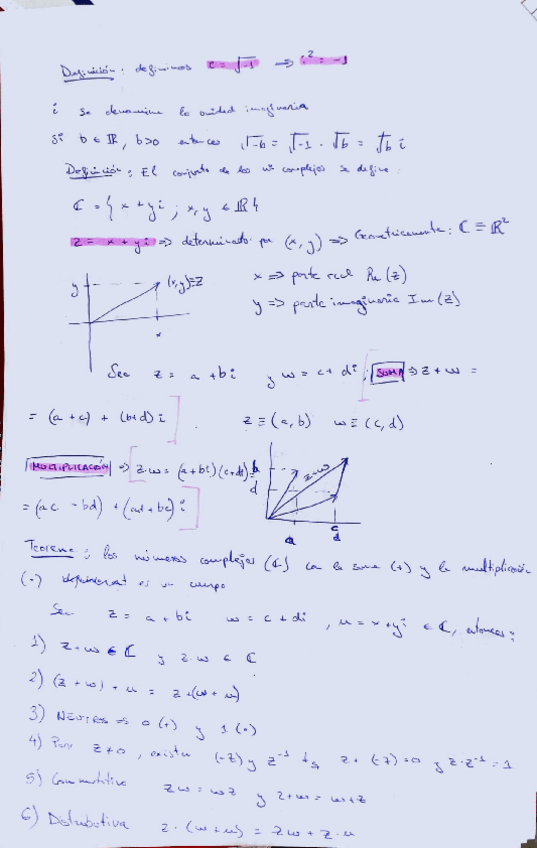 Definición: definimos i = √-1 ⇒ i² = -1
i se denomina la unidad imaginaria
Si b ∈ ℝ, b>0 entonces √-b = √-1 · √b = √b i
Definición: El conjunto de los nº complejos se define:
ℂ = { x + yi ; x, y ∈ ℝ }
z = x + yi ⇒ determinado por (x, y) ⇒ Geométricamente: ℂ ≡ ℝ²
y (x,y)≡z x ⇒ parte real Re(z)
x y ⇒ parte imaginaria Im(z)
Sea z = a + bi y w = c + di ; SUMA ⇒ z + w =
= (a + c) + (b+d) i z ≡ (a, b) w ≡ (c, d)
MULTIPLICACIÓN ⇒ z·w = (a+bi)(c+di) =
= (ac - bd) + (ad + bc) i
b
d
z+w
a c
d
Teorema: los números complejos (ℂ) con la suma (+) y la multiplicación
(·) es un cuerpo
Sea z = a + bi w = c + di , u = x+yi ∈ ℂ, entonces:
1) z + w ∈ ℂ y z·w ∈ ℂ
2) (z + w) + u = z + (w + u)
3) NEUTROS ⇒ 0 (+) y 1 (·)
4) Para z ≠ 0 , existen (-z) y z⁻¹ tq z + (-z) = 0 y z·z⁻¹ = 1
5) Conmutativa zw = wz y z+w = w+z
6) Distributiva z·(w+u) = zw + z·u